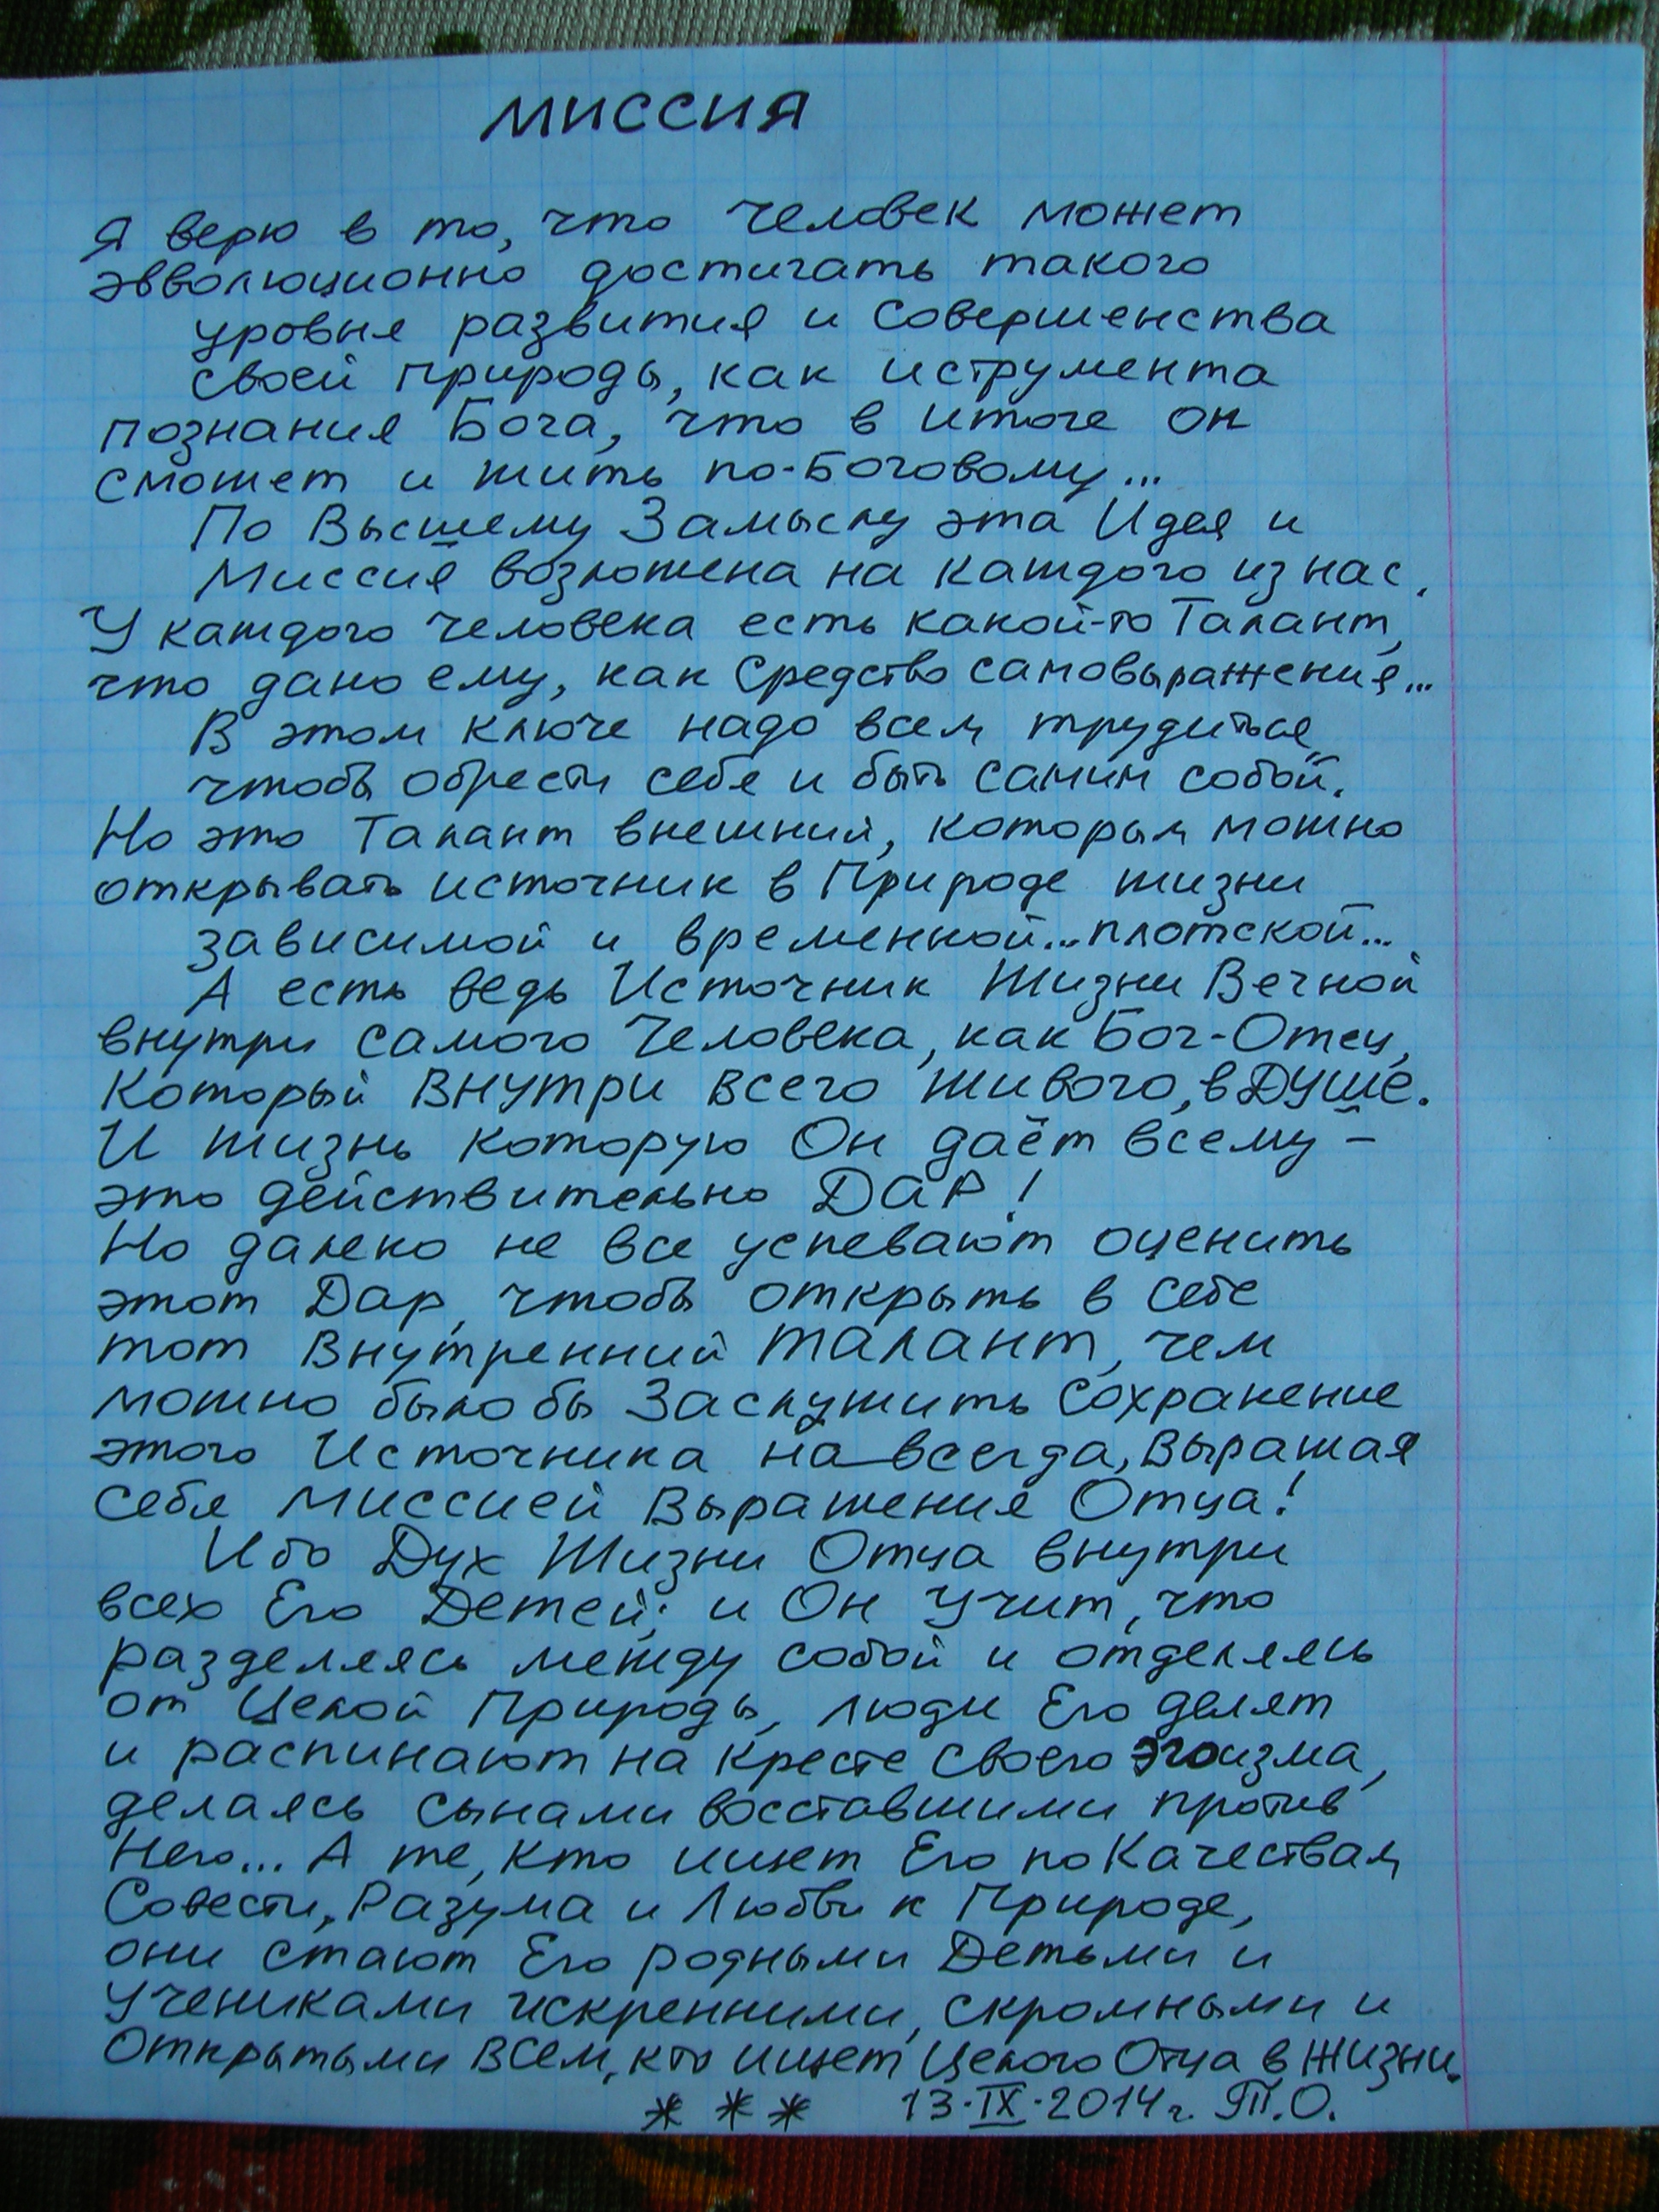 миссия
Я верю в то, что человек может
эвволюционно достигать такого
уровня развития и совершенства
своей природы, как иструмента
познания Бога, что в итоге он
сможет и жить по-Боговому...
По Высшему Замыслу эта Идея и
Миссия возложена на каждого из нас.
У каждого человека есть какой-то Талант,
что дано ему, как средство самовыражения...
В этом ключе надо всем трудиться,
чтобы обрести себя и быть самим собой.
Но это Талант внешний, которым можно
открывать источник в Природе жизни
зависимой и временной... плотской...
А есть ведь Источник Жизни Вечной
внутри самого Человека, как Бог-Отец,
Который внутри всего живого, в ДУШЕ.
И жизнь которую Он даёт всему –
это действительно ДАР!
Но далеко не все успевают оценить
этот Дар, чтобы открыть в себе
тот Внутренний талант, чем
можно было бы Заслужить Сохранение
этого Источника на всегда, выражая
себя миссией Выражения Отца!
Ибо Дух Жизни Отца внутри
всех Его Детей; и Он Учит, что
разделяясь между собой и отделяясь
от Целой Природы, люди Его делят
и распинают на кресте своего эгоизма,
делаясь сынами восставшими против
Него... А те, кто ищет Его по Качествам
Совести, Разума и Любви к Природе,
они стают Его родными Детьми и
Учениками искренними, скромными и
Открытыми всем, кто ищет Целого Отца в Жизни.
* * * 13·IX·2014г. Т.О.